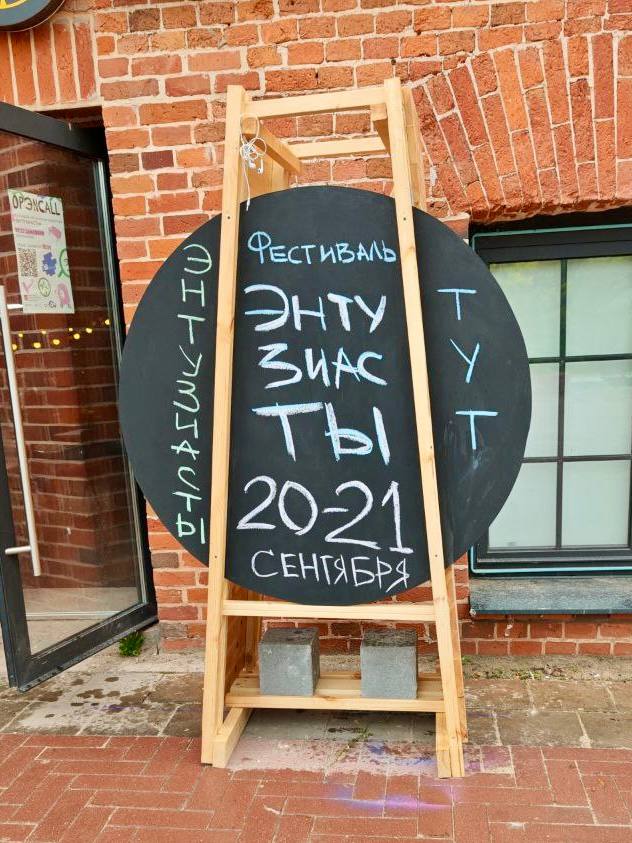 OPENCALL
ЭНТУЗИАСТЫ
ФЕСТИВАЛЬ
ЭНТУ
ЗИАС
ТЫ
20-21
СЕНТЯБРЯ
ТУТ